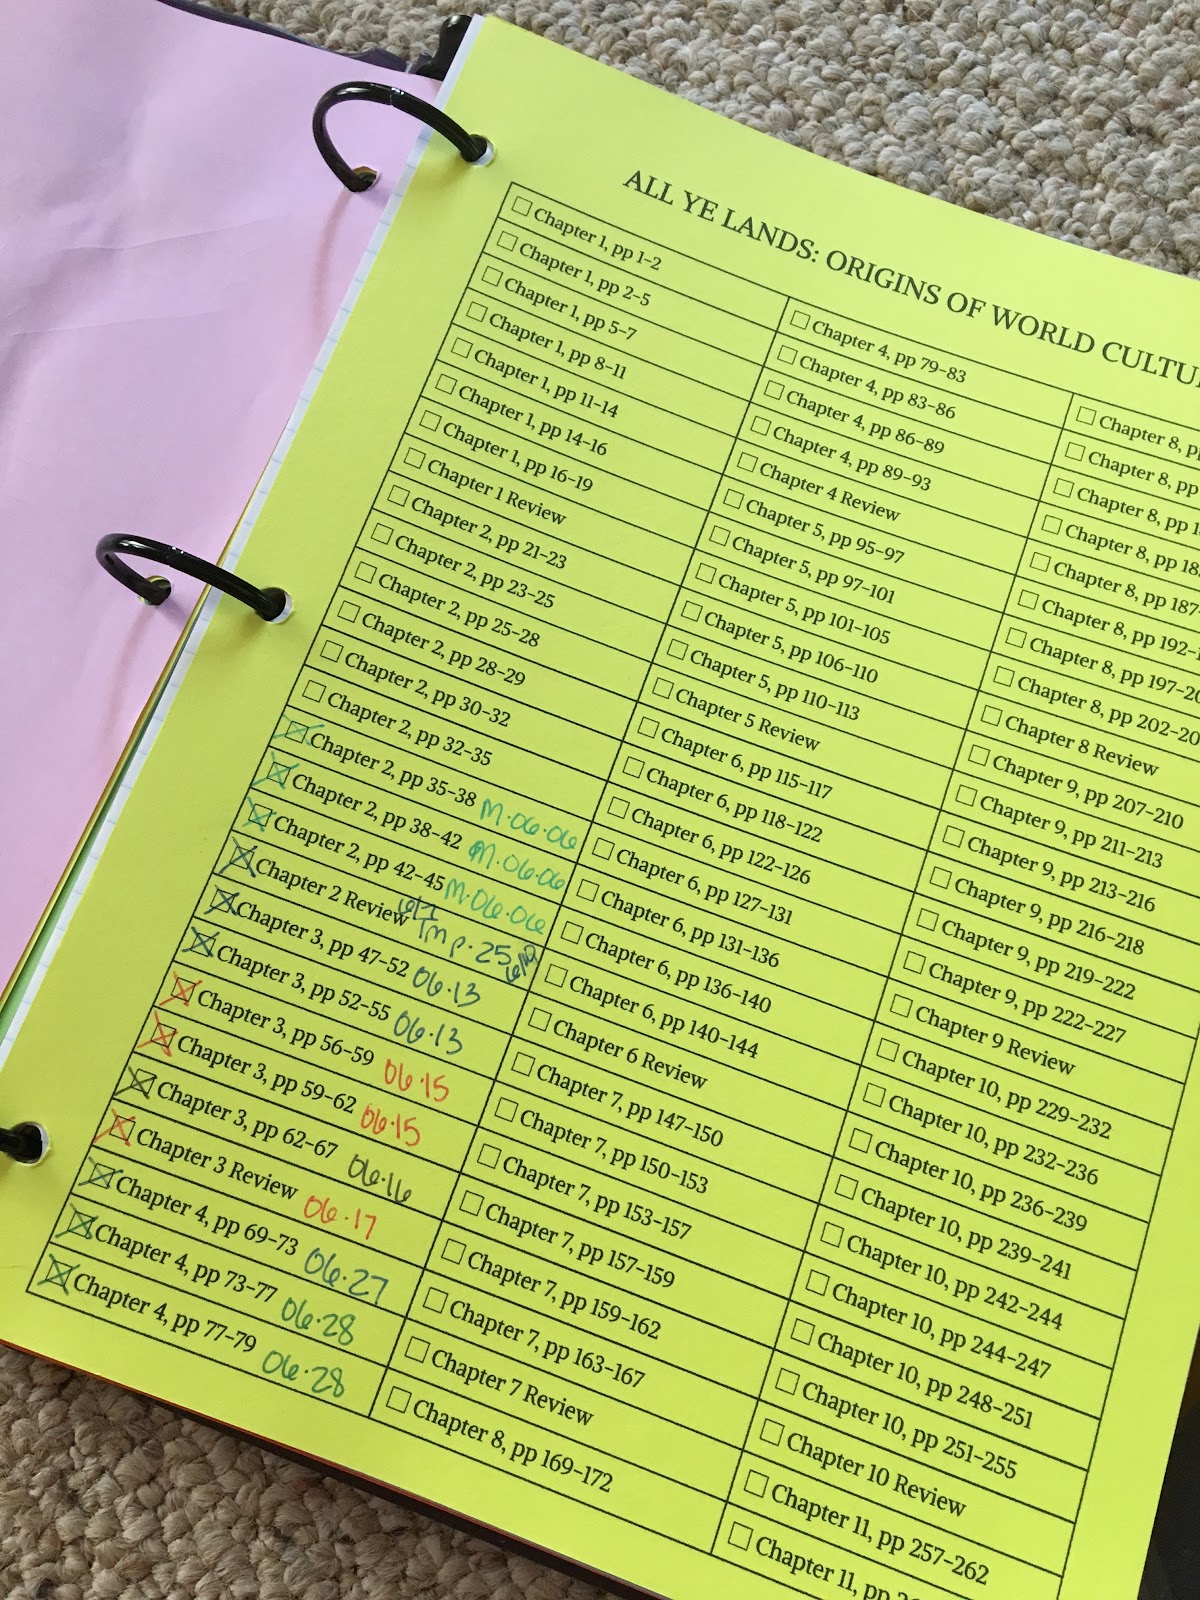 ALL YE LANDS: ORIGINS OF WORLD
Chapter 1, pp 1-2
Chapter 1, pp 2-5
Chapter 1, pp 5-7
Chapter 1, pp 8-11
Chapter 1, pp 11-14
Chapter 1, pp 14-16
Chapter 1, pp 16-19
Chapter 1 Review
Chapter 2, pp 21-23
Chapter 2, pp 23-25
Chapter 2, pp 25-28
Chapter 2, pp 28-29
Chapter 2, pp 30-32
Chapter 2, pp 32-35
Chapter 2, pp 35-38 M·06·06
Chapter 2, pp 38-42 M·06·06
Chapter 2, pp 42-45 M·06·06
Chapter 2 Review p. 25
Chapter 3, pp 47-52 06·13
Chapter 3, pp 52-55 06·13
Chapter 3, pp 56-59 06·15
Chapter 3, pp 59-62 06·15
Chapter 3, pp 62-67 06·16
Chapter 3 Review 06·17
Chapter 4, pp 69-73 06·27
Chapter 4, pp 73-77 06·28
Chapter 4, pp 77-79 06·28
Chapter 4, pp 79-83
Chapter 4, pp 83-86
Chapter 4, pp 86-89
Chapter 4, pp 89-93
Chapter 4 Review
Chapter 5, pp 95-97
Chapter 5, pp 97-101
Chapter 5, pp 101-105
Chapter 5, pp 106-110
Chapter 5, pp 110-113
Chapter 5 Review
Chapter 6, pp 115-117
Chapter 6, pp 118-122
Chapter 6, pp 122-126
Chapter 6, pp 127-131
Chapter 6, pp 131-136
Chapter 6, pp 136-140
Chapter 6, pp 140-144
Chapter 6 Review
Chapter 7, pp 147-150
Chapter 7, pp 150-153
Chapter 7, pp 153-157
Chapter 7, pp 157-159
Chapter 7, pp 159-162
Chapter 7, pp 163-167
Chapter 7 Review
Chapter 8, pp 169-172
Chapter 8,
Chapter 8, pp
Chapter 8, pp
Chapter 8, pp
Chapter 8, pp 187-
Chapter 8, pp 192-
Chapter 8, pp 197-
Chapter 8, pp 202-
Chapter 8 Review
Chapter 9, pp 207-210
Chapter 9, pp 211-213
Chapter 9, pp 213-216
Chapter 9, pp 216-218
Chapter 9, pp 219-222
Chapter 9, pp 222-227
Chapter 9 Review
Chapter 10, pp 229-232
Chapter 10, pp 232-236
Chapter 10, pp 236-239
Chapter 10, pp 239-241
Chapter 10, pp 242-244
Chapter 10, pp 244-247
Chapter 10, pp 248-251
Chapter 10, pp 251-255
Chapter 10 Review
Chapter 11, pp 257-262
Chapter 11, pp